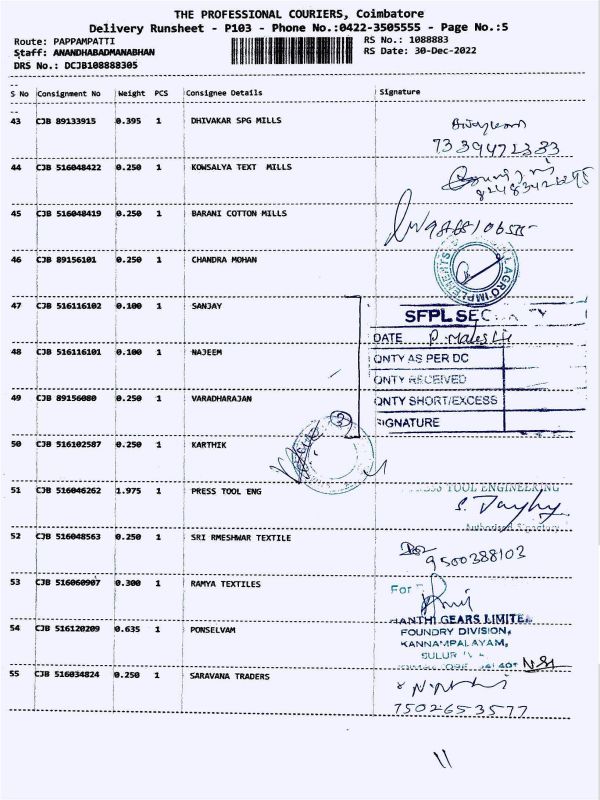 THE PROFESSIONAL COURIERS, Coimbatore
Delivery Runsheet - P103 - Phone No.:0422-3505555 - Page No.:5
Route: PAPPAMPATTI
RS No.: 1088883
Staff: ANANDHABADMANABHAN
RS Date: 30-Dec-2022
DRS No.: DCJB108888305
S No Consignment No Weight PCS Consignee Details Signature
43 CJB 89133915 0.395 1 DHIVAKAR SPG MILLS
44 CJB 516048422 0.250 1 KOWSALYA TEXT MILLS
45 CJB 516048419 0.250 1 BARANI COTTON MILLS
46 CJB 89156101 0.250 1 CHANDRA MOHAN
AGRO IMPLEMENTS
47 CJB 516116102 0.100 1 SANJAY
SFPL SEC
DATE
48 CJB 516116101 0.100 1 NAJEEM
QNTY AS PER DC
QNTY RECEIVED
49 CJB 89156080 0.250 1 VARADHARAJAN
QNTY SHORT/EXCESS
SIGNATURE
3
50 CJB 516102587 0.250 1 KARTHIK
51 CJB 516046262 1.975 1 PRESS TOOL ENG
TOOL ENGINEERING
Authorised Signatory
52 CJB 516048563 0.250 1 SRI RMESHWAR TEXTILE
9500388103
53 CJB 516060907 0.300 1 RAMYA TEXTILES
For
54 CJB 516120209 0.635 1 PONSELVAM
GEARS LIMITE
FOUNDRY DIVISION,
KANNAMPALAYAM,
SULUR
55 CJB 516034824 0.250 1 SARAVANA TRADERS
7502653577